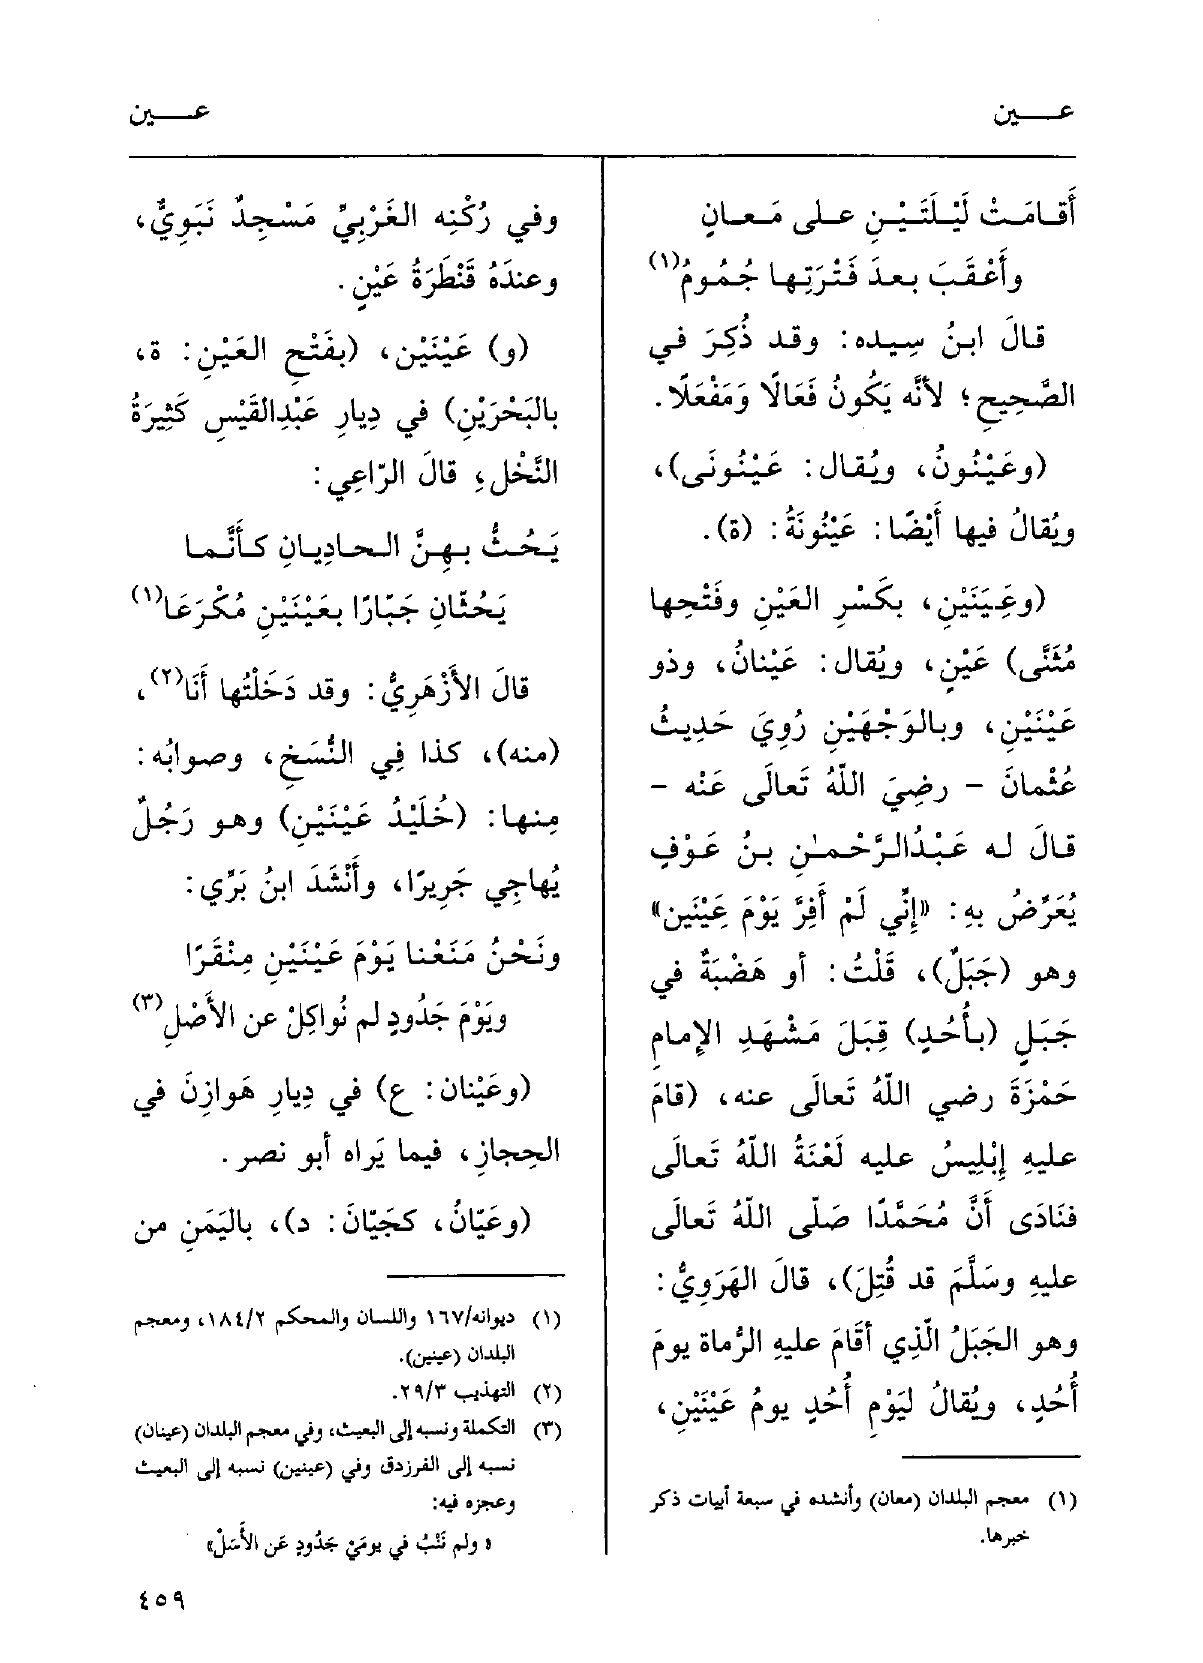 عـــين
عـــين
أَقـامَـتْ لَيْلَتَيْـنِ علـى مَـعـانٍ
وأَعْقَـبَ بـعـدَ فَـتْـرَتِـهـا جُـمُـومُ(١)
قالَ ابنُ سِيده: وقد ذُكِرَ في
الصَّحِيحِ؛ لأنَّه يَكُونُ فَعَالًا وَمَفْعَلًا.
(وعَيْنُونُ، ويُقال: عَيْنُونَى)،
ويُقالُ فيها أَيْضًا: عَيْنُونَةُ: (ة).
(وعِيَنَيْنِ، بكَسْرِ العَيْنِ وفَتْحِها
مُثَنَّى) عَيْنٍ، ويُقال: عَيْنانُ، وذو
عَيْنَيْنِ، وبالوَجْهَيْنِ رُوِيَ حَدِيثُ
عُثْمانَ - رضِيَ اللّهُ تَعالَى عَنْه -
قالَ له عَبْدُالرَّحْمـٰنِ بنُ عَوْفٍ
يُعَرِّضُ بِهِ: «إِنِّي لَمْ أَفِرَّ يَوْمَ عِيْنَين»
وهو (جَبَلٌ)، قُلْتُ: أو هَضْبَةٌ في
جَبَلٍ (بأُحُدٍ) قِبَلَ مَشْهَدِ الإمامِ
حَمْزَةَ رضي اللّهُ تَعالَى عنه، (قامَ
عليهِ إِبْلِيسُ عليه لَعْنَةُ اللّهُ تَعالَى
فنَادَى أَنَّ مُحَمَّدًا صَلّى اللّهُ تَعالَى
عليهِ وسَلَّمَ قد قُتِلَ)، قالَ الهَرَوِيُّ:
وهو الجَبَلُ الّذِي أَقَامَ عليهِ الرُّماة يومَ
أُحُدٍ، ويُقالُ ليَوْمِ أُحُدٍ يومُ عَيْنَيْنِ،
(١) معجم البلدان (معان) وأنشده في سبعة أبيات ذكر
خبرها.
وفي رُكْنِه الغَرْبِيِّ مَسْجِدٌ نَبَوِيٌّ،
وعندَهُ قَنْطَرَةُ عَيْنٍ.
(و) عَيْنَيْن، (بفَتْحِ العَيْنِ: ة،
بالبَحْرَيْنِ) في دِيارِ عَبْدِالقَيْسِ كَثِيرَةُ
النَّخْلِ، قالَ الرّاعِي:
يَـحُـثُّ بـهِـنَّ الـحـادِيـانِ كـأَنَّـمـا
يَحُثّانِ جَبّارًا بعَيْنَيْنِ مُكْرَعَا(١)
قالَ الأَزْهَرِيُّ: وقد دَخَلْتُها أَنَا(٢)،
(منه)، كذا فِي النُّسَخِ، وصوابُه:
مِنها: (خُلَيْدُ عَيْنَيْنِ) وهو رَجُلٌ
يُهاجِي جَرِيرًا، وأَنْشَدَ ابنُ بَرِّي:
ونَحْنُ مَنَعْنا يَوْمَ عَيْنَيْنِ مِنْقَرًا
ويَوْمَ جَدُودٍ لم نُواكِلْ عن الأَصْلِ(٣)
(وعَيْنان: ع) في دِيارِ هَوازِنَ في
الحِجازِ، فيما يَراه أبو نصر.
(وعَيّانُ، كجَيّانَ: د)، باليَمَنِ من
(١) ديوانه/١٦٧ واللسان والمحكم ١٨٤/٢، ومعجم
البلدان (عينين).
(٢) التهذيب ٢٩/٣.
(٣) التكملة ونسبه إلى البعيث، وفي معجم البلدان (عينان)
نسبه إلى الفرزدق وفي (عينين) نسبه إلى البعيث
وعجزه فيه:
« ولم نَنْبُ في يومَيْ جَدُودٍ عَن الأَسَلْ»
٤٥٩